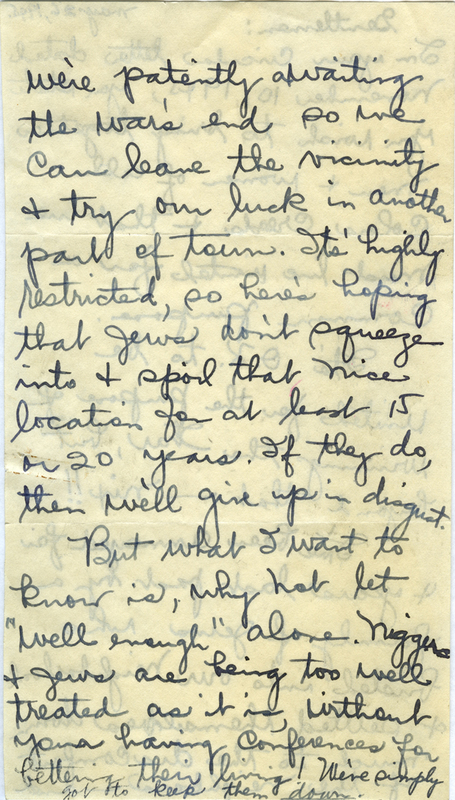 we're patiently awaiting
the war's end so we
can leave the vicinity
& try our luck in another
part of town. It's highly
restricted, so here's hoping
that Jews don't squeeze
into & spoil that nice
location for at least 15
or 20 years. If they do,
then we'll give up in disgust.
But what I want to
know is, why not let
"well enough" alone. Niggers
& Jews are being too well
treated as it is, without
your having Conferences for
bettering their living! We've simply
got to keep them down.